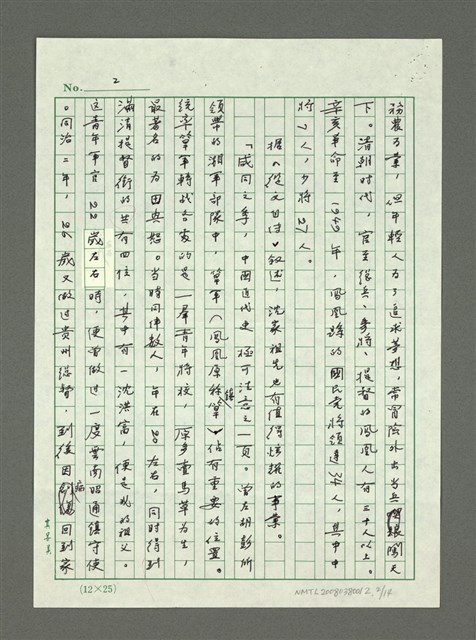 No. 2
務農為業，但年輕人為了追求夢想，常冒險外出當兵，闖天
下。清朝时代，官至總兵、參將、提督的鳳凰人有三十人以上。
辛亥革命至1949年，鳳凰縣的國民党將領達34人，其中中
將7人，少將27人。
據《從文自传》叙述，沈家祖先也有值得炫耀的事業。
「咸同之季，中國近代史極可注意之一頁。曾左胡彭所
領帶的湘軍部隊中，筸軍（鳳凰原稱鎮筸）佔有重要的位置。
統率筸軍轉战各處的是一群青年將校，原多賣馬草为生，
最著名的为田興恕。当時同伴数人，年在20左右，同时得到
滿清提督銜的共有四位，其中有一沈洪富，便是我的祖父。
这青年軍官22歲左右時，便曾做过一度雲南昭通鎮守使
。同治二年，26歲又做过貴州總督，到後因病回到家
(12×25)
NMTL20080180012 2/14